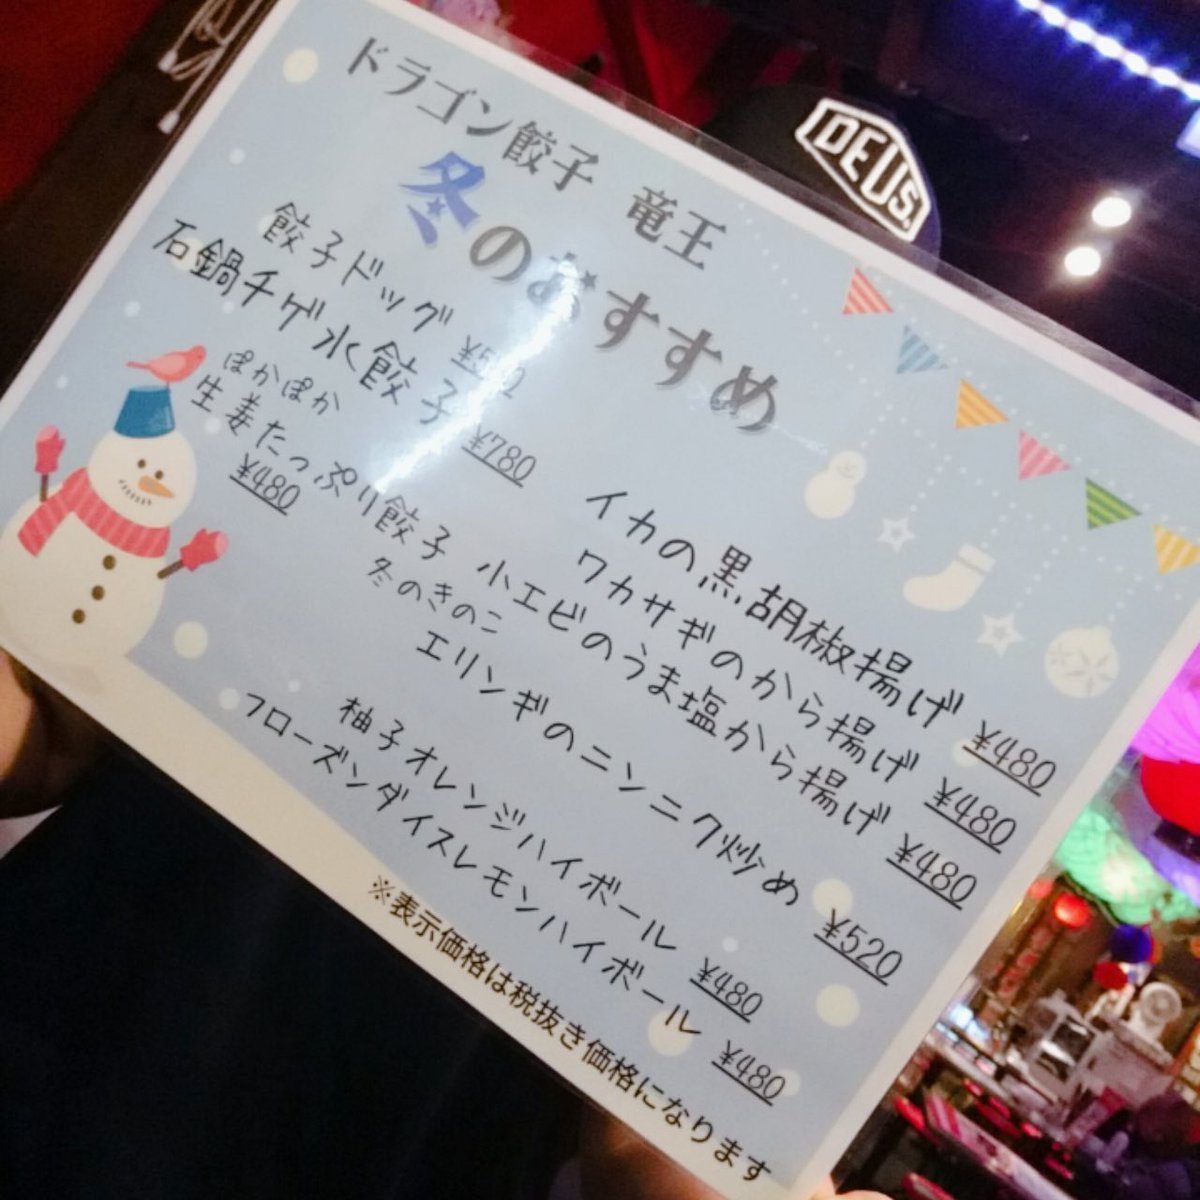 DEUS.
ドラゴン餃子 竜王
冬のおすすめ
餃子ドッグ
石鍋チゲ水餃子 ¥780
ぽかぽか
生姜たっぷり餃子
¥480
イカの黒胡椒揚げ ¥480
ワカサギのから揚げ ¥480
小エビのうま塩から揚げ ¥480
冬のきのこ
エリンギのニンニク炒め ¥520
柚子オレンジハイボール ¥480
フローズンダイスレモンハイボール ¥480
※表示価格は税抜き価格になります